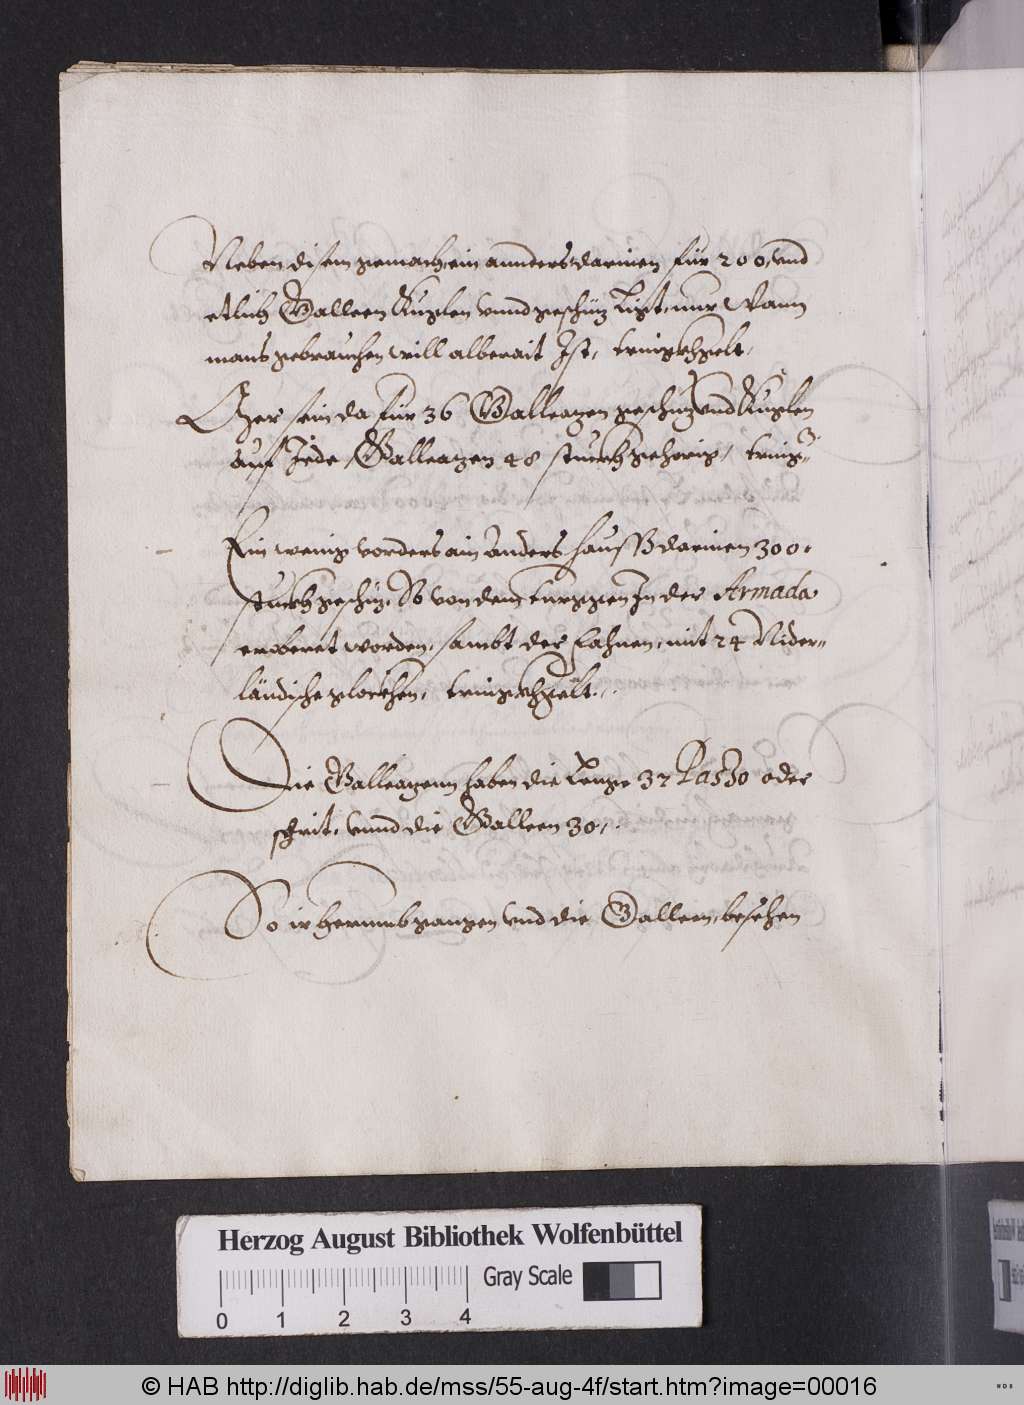 Neben disem gemach, ein annders darinen für 200, vnd
etlich Galleen Kuglen vnnd geschüz ligt, nur Wann
mans gebrauchen will alberait Ist, trinckhgelt,
Mer sein da für 36 Galleazen geschüz vnd Kuglen
auf Jede Galleazen 48 stuckh gehörig,
Ein wenig vorders ain anders hauß darinen 300.
stuckh geschüz, So von dem türggen In der Armada
erobert worden, sambt der fahnen, mit 24 Nider=
ländische glockhen, trinckhgelt.
Die Galleazenn haben die Lenge 32 Passo oder
schrit, vnnd die Galleen 30,
So ir herumb gangen vnd die Galleen, besehen
Herzog August Bibliothek Wolfenbüttel
Gray Scale
0 1 2 3 4
© HAB http://diglib.hab.de/mss/55-aug-4f/start.htm?image=00016